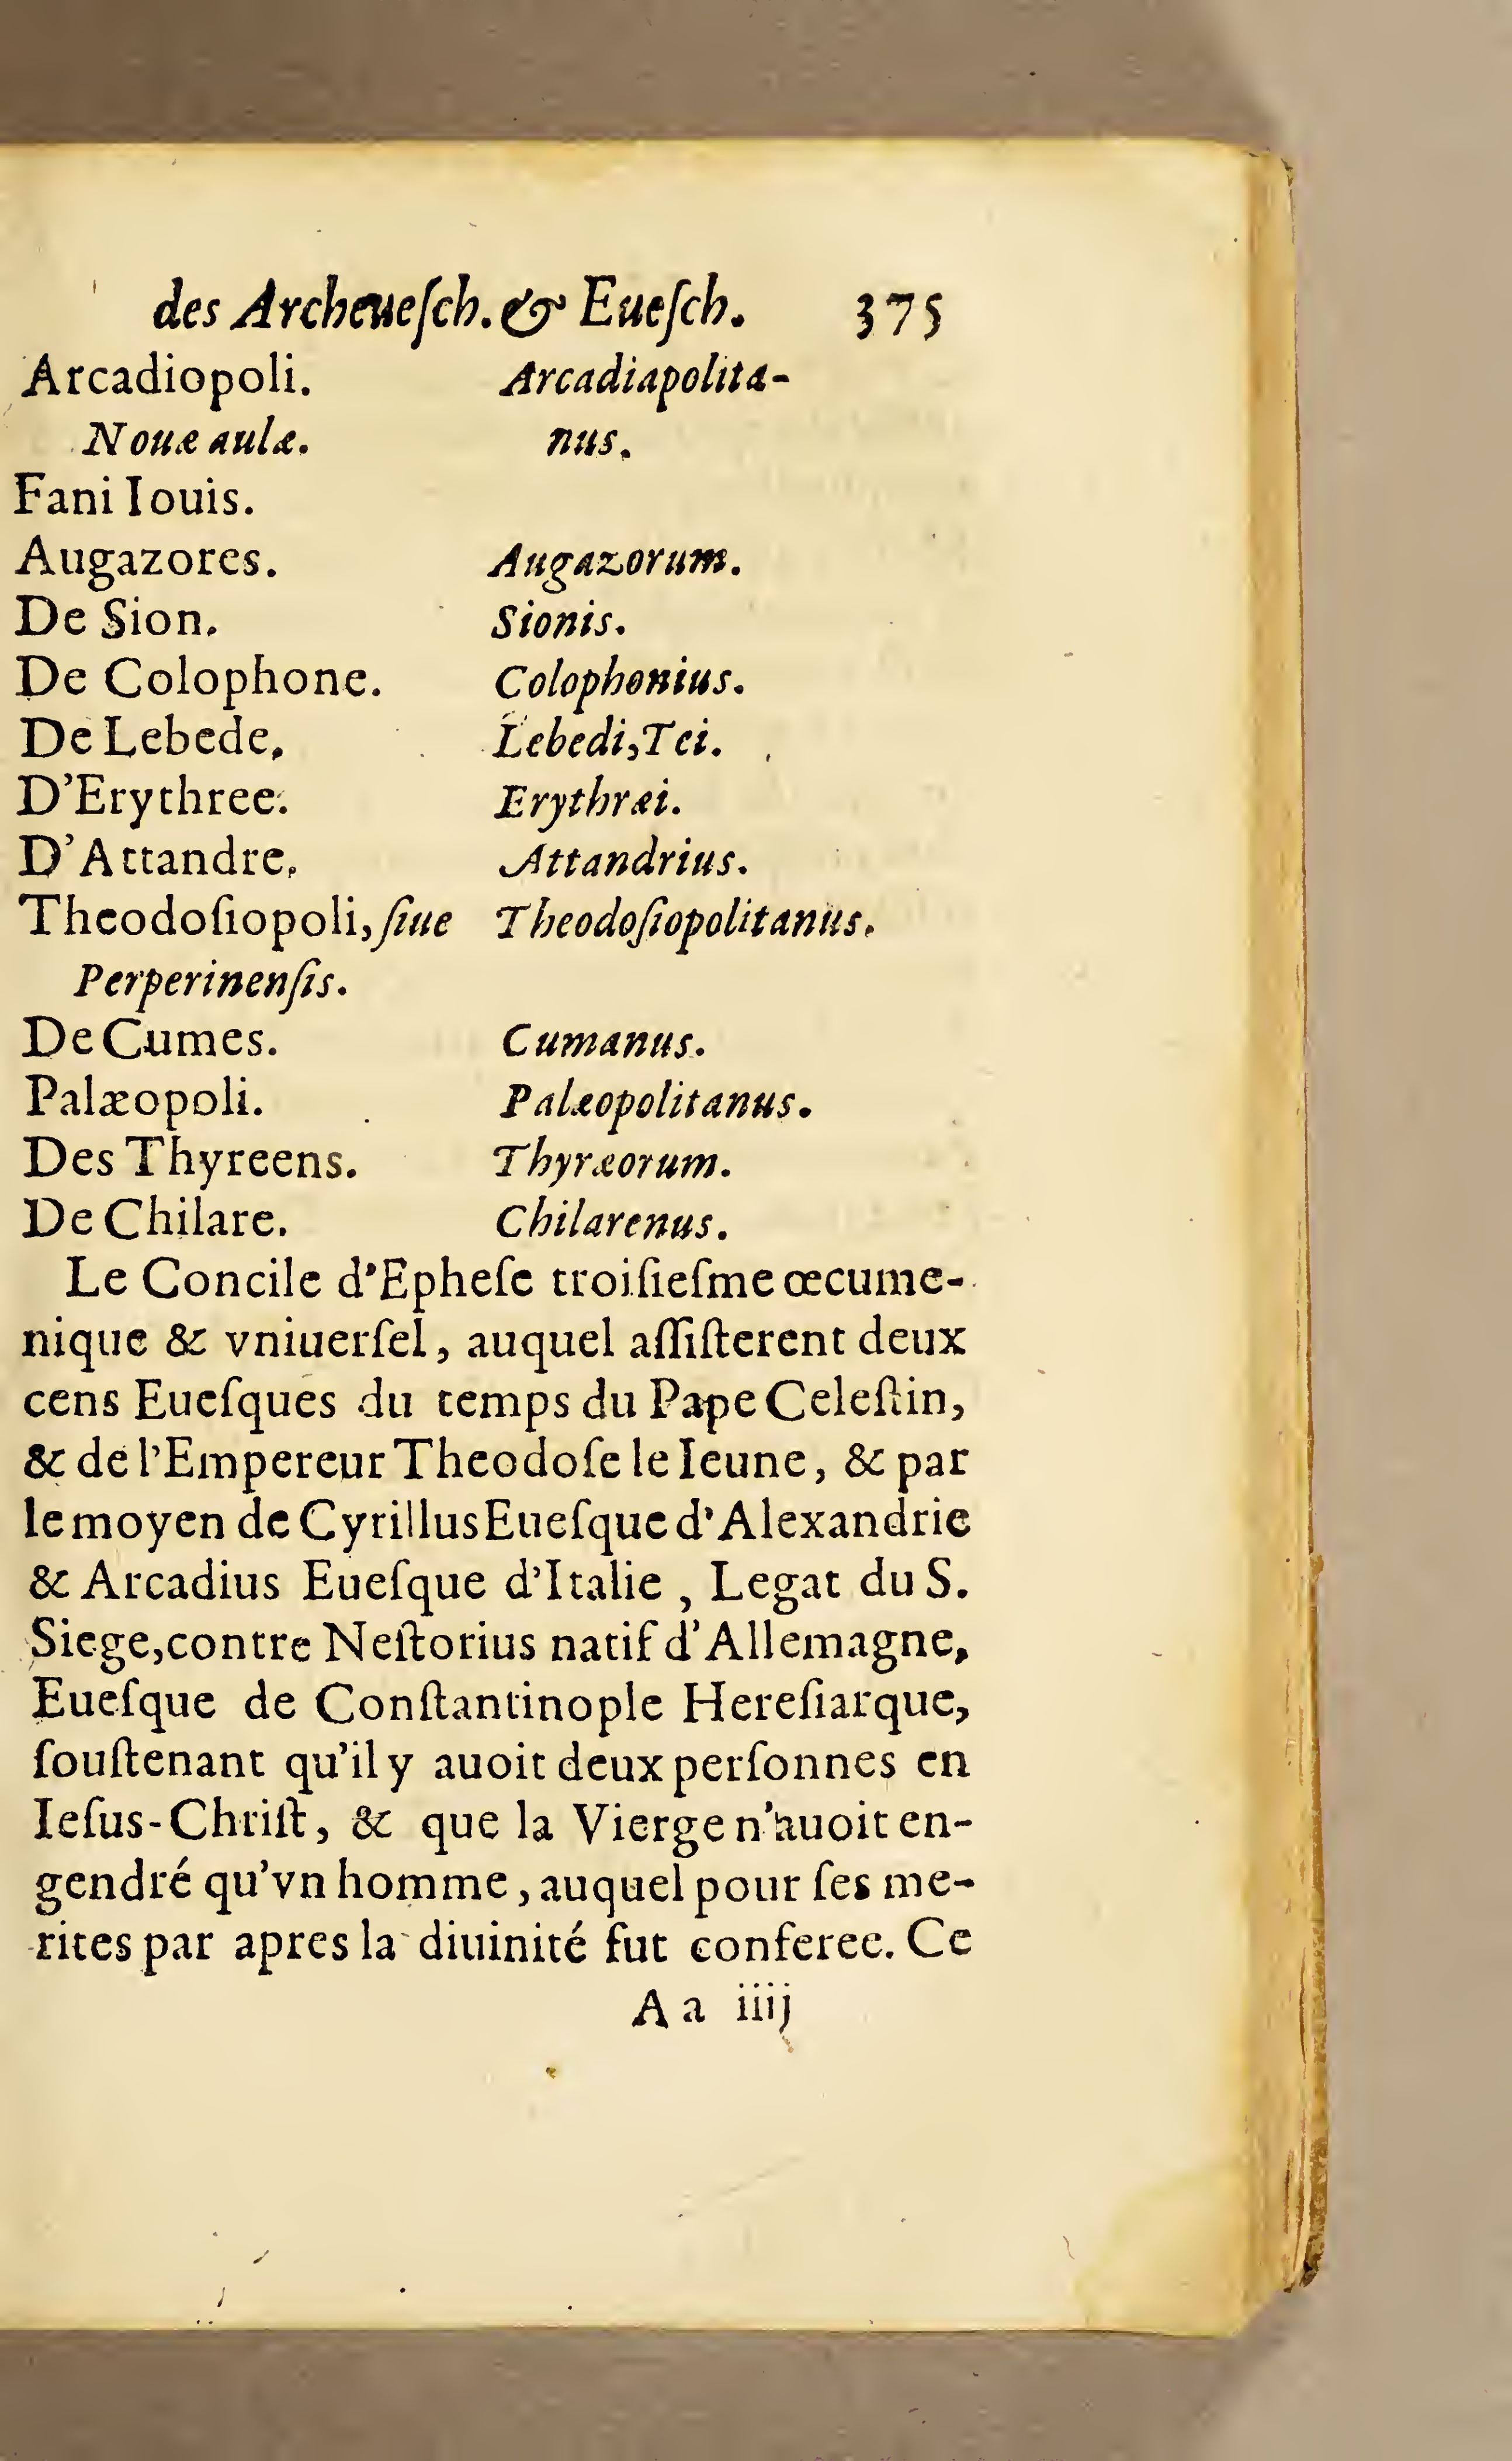 des Archeueſch. & Eueſch. 375
Arcadiopoli. Arcadiapolita-
Nouæ aulæ. nus.
Fani Iouis.
Augazores. Augazorum.
De Sion. Sionis.
De Colophone. Colophonius.
De Lebede. Lebedi, Tei.
D'Erythree. Erythræi.
D'Attandre. Attandrius.
Theodoſiopoli, ſiue Theodoſiopolitanus.
Perperinenſis.
De Cumes. Cumanus.
Palæopoli. Palæopolitanus.
Des Thyreens. Thyræorum.
De Chilare. Chilarenus.
Le Concile d'Epheſe troiſieſme œcume-
nique & vniuerſel, auquel aſſiſterent deux
cens Eueſques du temps du Pape Celeſtin,
& de l'Empereur Theodoſe le Ieune, & par
le moyen de Cyrillus Eueſque d'Alexandrie
& Arcadius Eueſque d'Italie, Legat du S.
Siege, contre Neſtorius natif d'Allemagne,
Eueſque de Conſtantinople Hereſiarque,
ſouſtenant qu'il y auoit deux perſonnes en
Ieſus-Chriſt, & que la Vierge n'auoit en-
gendré qu'vn homme, auquel pour ſes me-
rites par apres la diuinité fut conferee. Ce
A a iiij